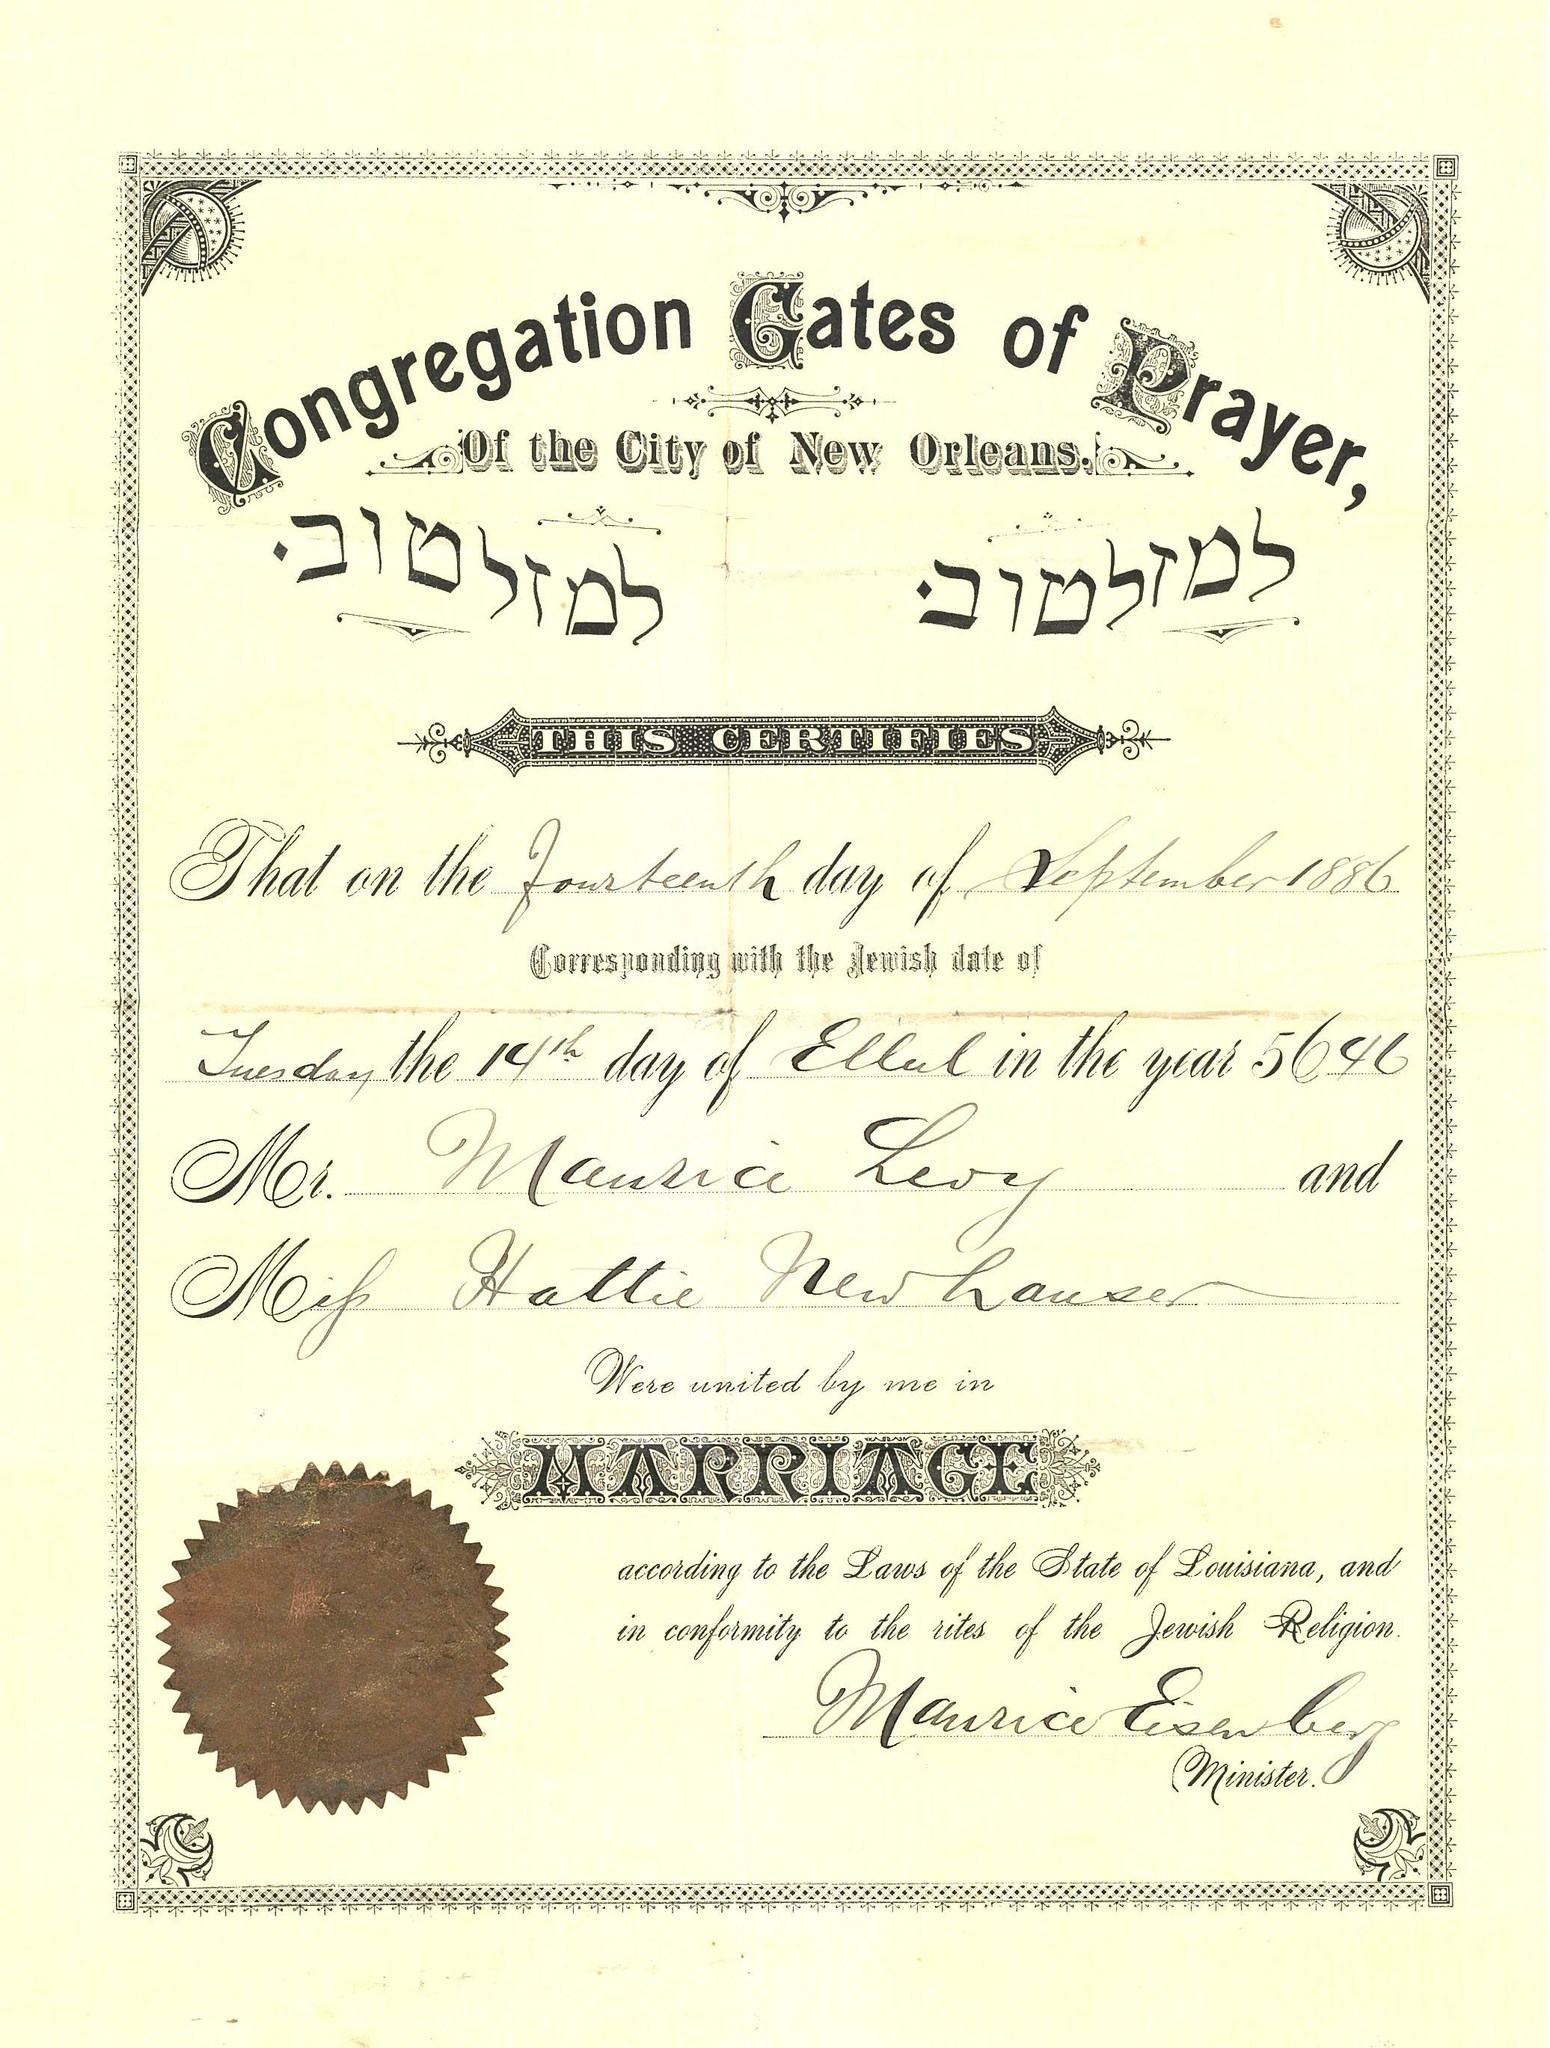 Congregation Gates of Prayer,
Of the City of New Orleans.
למזל טוב.
למזל טוב.
THIS CERTIFIES
That on the Fourteenth day of September 1886
Corresponding with the Jewish date of
Tuesday the 14th day of Ellul in the year 5646
Mr. Maurice Levy and
Miss Hattie Newhauser
Were united by me in
MARRIAGE
according to the Laws of the State of Louisiana, and
in conformity to the rites of the Jewish Religion.
Maurice Eisenberg
Minister.